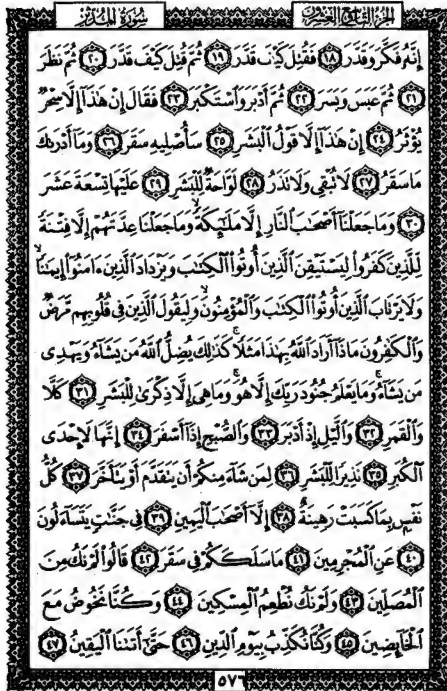 الجزء التاسع والعشرون سورة المدثر
إِنَّهُۥ فَكَّرَ وَقَدَّرَ ١٨ فَقُتِلَ كَيْفَ قَدَّرَ ١٩ ثُمَّ قُتِلَ كَيْفَ قَدَّرَ ٢٠ ثُمَّ نَظَرَ
٢١ ثُمَّ عَبَسَ وَبَسَرَ ٢٢ ثُمَّ أَدْبَرَ وَٱسْتَكْبَرَ ٢٣ فَقَالَ إِنْ هَٰذَآ إِلَّا سِحْرٌ
يُؤْثَرُ ٢٤ إِنْ هَٰذَآ إِلَّا قَوْلُ ٱلْبَشَرِ ٢٥ سَأُصْلِيهِ سَقَرَ ٢٦ وَمَآ أَدْرَىٰكَ
مَا سَقَرُ ٢٧ لَا تُبْقِى وَلَا تَذَرُ ٢٨ لَوَّاحَةٌ لِّلْبَشَرِ ٢٩ عَلَيْهَا تِسْعَةَ عَشَرَ
٣٠ وَمَا جَعَلْنَآ أَصْحَٰبَ ٱلنَّارِ إِلَّا مَلَٰٓئِكَةً وَمَا جَعَلْنَا عِدَّتَهُمْ إِلَّا فِتْنَةً
لِّلَّذِينَ كَفَرُوا۟ لِيَسْتَيْقِنَ ٱلَّذِينَ أُوتُوا۟ ٱلْكِتَٰبَ وَيَزْدَادَ ٱلَّذِينَ ءَامَنُوٓا۟ إِيمَٰنًا
وَلَا يَرْتَابَ ٱلَّذِينَ أُوتُوا۟ ٱلْكِتَٰبَ وَٱلْمُؤْمِنُونَ وَلِيَقُولَ ٱلَّذِينَ فِى قُلُوبِهِم مَّرَضٌ
وَٱلْكَٰفِرُونَ مَاذَآ أَرَادَ ٱللَّهُ بِهَٰذَا مَثَلًا كَذَٰلِكَ يُضِلُّ ٱللَّهُ مَن يَشَآءُ وَيَهْدِى
مَن يَشَآءُ وَمَا يَعْلَمُ جُنُودَ رَبِّكَ إِلَّا هُوَ وَمَا هِىَ إِلَّا ذِكْرَىٰ لِلْبَشَرِ ٣١ كَلَّا
وَٱلْقَمَرِ ٣٢ وَٱلَّيْلِ إِذْ أَدْبَرَ ٣٣ وَٱلصُّبْحِ إِذَآ أَسْفَرَ ٣٤ إِنَّهَا لَإِحْدَى
ٱلْكُبَرِ ٣٥ نَذِيرًا لِّلْبَشَرِ ٣٦ لِمَن شَآءَ مِنكُمْ أَن يَتَقَدَّمَ أَوْ يَتَأَخَّرَ ٣٧ كُلُّ
نَفْسٍۭ بِمَا كَسَبَتْ رَهِينَةٌ ٣٨ إِلَّآ أَصْحَٰبَ ٱلْيَمِينِ ٣٩ فِى جَنَّٰتٍ يَتَسَآءَلُونَ
٤٠ عَنِ ٱلْمُجْرِمِينَ ٤١ مَا سَلَكَكُمْ فِى سَقَرَ ٤٢ قَالُوا۟ لَمْ نَكُ مِنَ
ٱلْمُصَلِّينَ ٤٣ وَلَمْ نَكُ نُطْعِمُ ٱلْمِسْكِينَ ٤٤ وَكُنَّا نَخُوضُ مَعَ
ٱلْخَآئِضِينَ ٤٥ وَكُنَّا نُكَذِّبُ بِيَوْمِ ٱلدِّينِ ٤٦ حَتَّىٰٓ أَتَىٰنَا ٱلْيَقِينُ ٤٧
٥٧٦